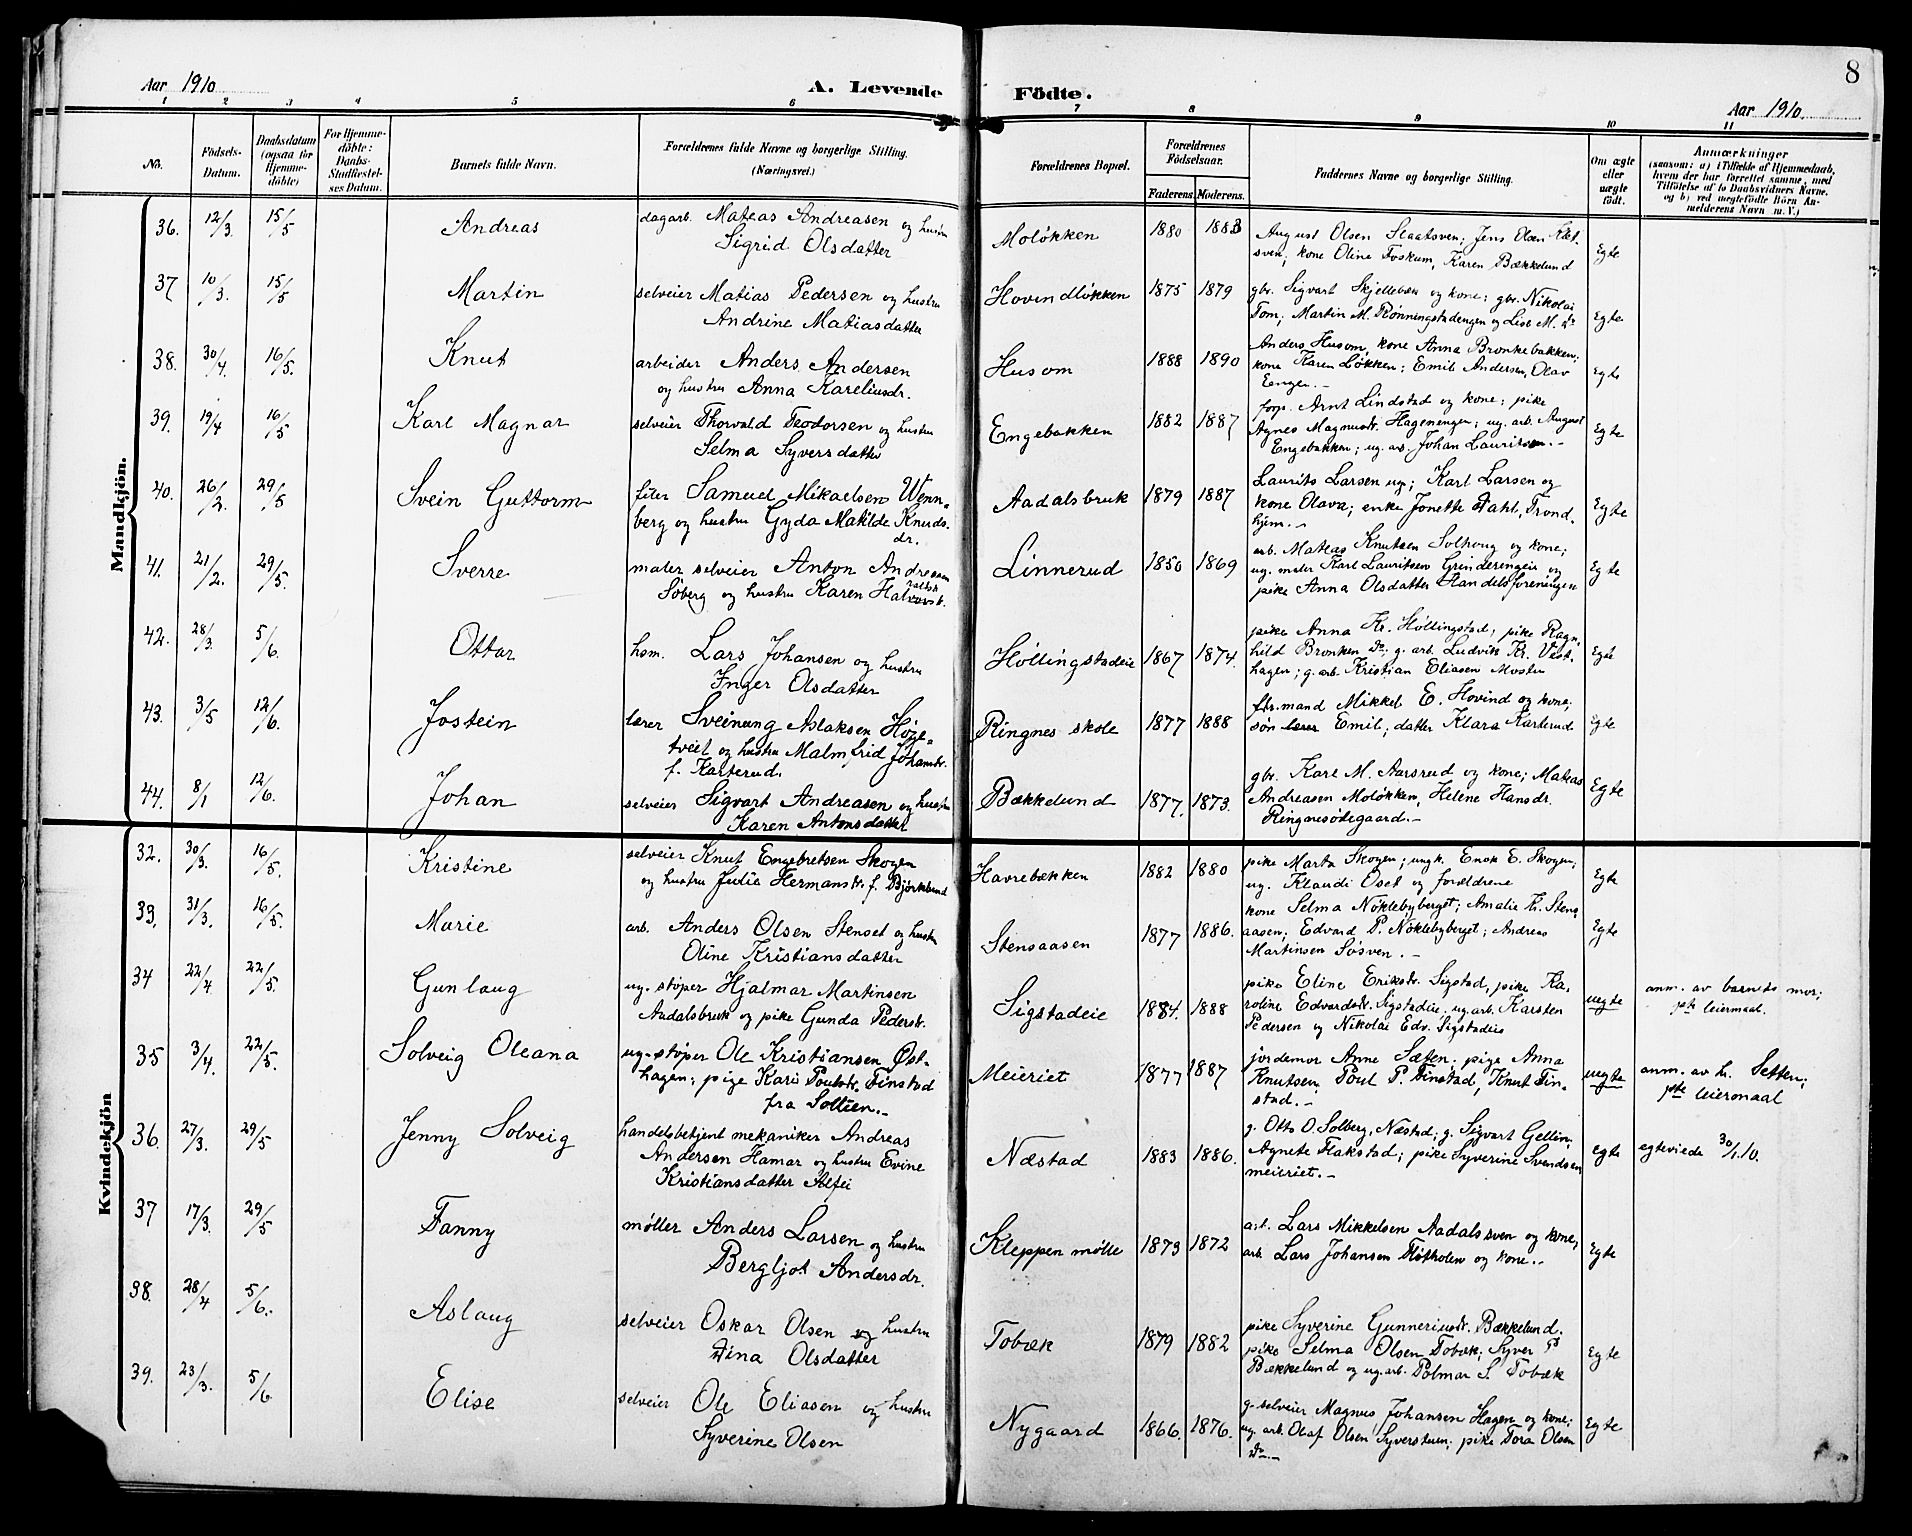 Aar 1910
A. Levende Födte.
8
Aar 1910.
1 2 3 4 5 6 7 8 9 10 11
No.
Födsels-Datum.
Daabsdatum (ogsaa for Hjemme-döbte)
For Hjemme-döbte: Daabs-Stadfæstelses Datum.
Barnets fulde Navn.
Forældrenes fulde Navne og borgerlige Stilling. (Næringsvei.)
Forældrenes Bopæl.
Forældrenes Födselsaar.
Faderens. Moderens.
Faddernes Navne og borgerlige Stilling.
Om ægte eller uægte födt.
Anmærkninger
(saasom: a) i Tilfælde af Hjemmedaab, hvem der har forrettet samme, med Tilföielse af to Daabsvidners Navne. og b) ved uegtefödte Börn Anmelderens Navn m. V.)
Mandkjön.
36. 12/3. 15/5 Andreas dagarb. Mateas Andreasen og hustru
Sigrid Olsdatter Moløkken 1880 1883
August Olsen Slaatsven; Jens Olsen
sven; kone Oline Foskum, Karen Bækkelund Egte
37 10/3. 15/5 Martin selveier Matias Pedersen og hustru
Andrine Matiasdatter Hovindløkken 1875 1879
gbr. Sigvart Skjellebæn og kone; gbr. Nikolai
Tom; Martin M. Rønningstadengen og Lise M. do Egte
38. 30/4. 16/5. Knut arbeider Anders Andersen
og hustru Anna Kareliusdr. Husom 1888 1890
Anders Husom, kone Anna Bronkebakken;
kone Karen Løkken; Emil Andersen, Olav
Eengen.- Egte
39. 19/4 16/5 Karl Magnar selveier Thorvald Teodorsen og hustru
Selma Syversdatter Engebakken 1882 1887
forp. Arnt Lindstad og kone; pike
Agnes Magnusdr. Hagenengen; ug. arb. August
Engebakken; ug. arb. Johan Lauritsen.- Egte
40. 26/2. 29/5 Svein Guttorm filer Samuel Mikaelsen Wenn-
berg og hustru Gyda Matilde Knuds.
dr. Aadalsbruk 1879 1887
Laurits Larsen ug; Karl Larsen og
kone Olava; enke Jonette Dahl, Trond.
hjem.- Egte
41. 21/2. 29/5. Sverre maler selveier Anton Andreasen
Söberg og hustru Karen Linnerud 1850 1869
arb. Mateas Knutsen Solhoug og kone;
ug. maler Karl Lauritsen Grinderengen og
pike Anna Olsdatter Handelsforeningen Egte
42. 28/3. 5/6. Ottar hsm. Lars Johansen og hustru
Inger Olsdatter Höllingstadeie 1867 1874.
pike Anna Kr. Höllingstad; pike Ragn-
hild Bronken do; g. arb. Ludvik Kr. Vest-
hagen; g. arb. Kristian Eliasen Egte
43. 3/5 12/6. Jostein lærer Sveinung Aslaksen Höge-
tveit og hustru Malmfrid Johansdr.
f. Karterud. Ringnes skole 1877 1888
mand Mikkel E. Hovind og kone;
søn Emil, datter Klara Karterud Egte
44. 8/1 12/6. Johan selveier Sigvart Andreasen og hustru
Karen Antonsdatter Bækkelund 1877. 1873.
gbr. Karl M. Aarsrud og kone; Mateas
Andreasen Moløkken, Helene Hansdr.
Ringnesödegaard.- Egte
Kvindekjön
32. 30/3. 16/5. Kristine selveier Knut Engebretsen Skogen
og hustru Julie Hermansdr. f. Björkelund Havrebækken 1882 1880
pike Marta Skogen; ungk. Enok E. Skogen;
ug. Klaudi Oset og forældrene Egte
33. 31/3. 16/5. Marie arb. Anders Olsen Stenset og hustru
Oline Kristiansdatter Stensaasen 1877 1886.
kone Selma Nöklebyberget; Amalie Kr. Stens-
aasen; Edvard P. Nöklebyberget; Andreas
Martinsen Søsven.- Egte
34 22/4. 22/5. Gunlaug ug. støper Hjalmar Martinsen
Aadalsbruk og pike Gunda Pedersdr. Sigstadeie 1884. 1888
pike Eline Eriksdr. Sigstad, pike Ka-
roline Edvardsdr. Sigstadeie, ug. arb. Karsten
Pedersen og Nikolai Edv. Sigstadeie uegte anm. av barnets mor;
pte leiermaal.
35 3/4. 22/5. Solveig Oleana ug. støper Ole Kristiansen Øst-
hagen; pige Kari Poulsdr. Finstad
fra Sollien.- Meieriet 1877 1887
jordemor Anne Sæten. pige Anna
Knutsen Poul P. Finstad, Knut Fin-
stad.- uegte anm. av hr. Setten;
pte leiermaal
36. 27/3. 29/5 Jenny Solveig handelsbetjent mekaniker Andreas
Andersen Hamar og hustru Evine
Kristiansdatter Alfei Næstad 1883 1886.
g. Otto O. Solberg, Næstad; g. Sigvart Gellin;
Agnete Flakstad; pike Syverine Svendsen
meieriet.- Egte egteviede 30/1.10.
37 17/3. 29/5 Fanny møller Anders Larsen og hustru
Bergljot Andersdr. Kleppen mølle 1873 1872
arb. Lars Mikkelsen Aadalssven og kone,
arb. Lars Johansen Fløtholen og kone.- Egte
38. 28/4 5/6. Aslaug selveier Oskar Olsen og hustru
Dina Olsdatter Tobæk 1879 1882
pike Syverine Gunneriusdr. Bækkelund.
pike Selma Olsen Tobæk; Syver
Bækkelund og ug. arb. Polmar S. Tobæk Egte
39. 23/3. 5/6 Elise selveier Ole Eliasen og hustru
Syverine Olsen Nygaard 1866. 1876.
g. selveier Magnus Johansen Hagen og kone;
ug. arb. Olaf Olsen Syverstuen; pike Tora Olsen
do.- Egte